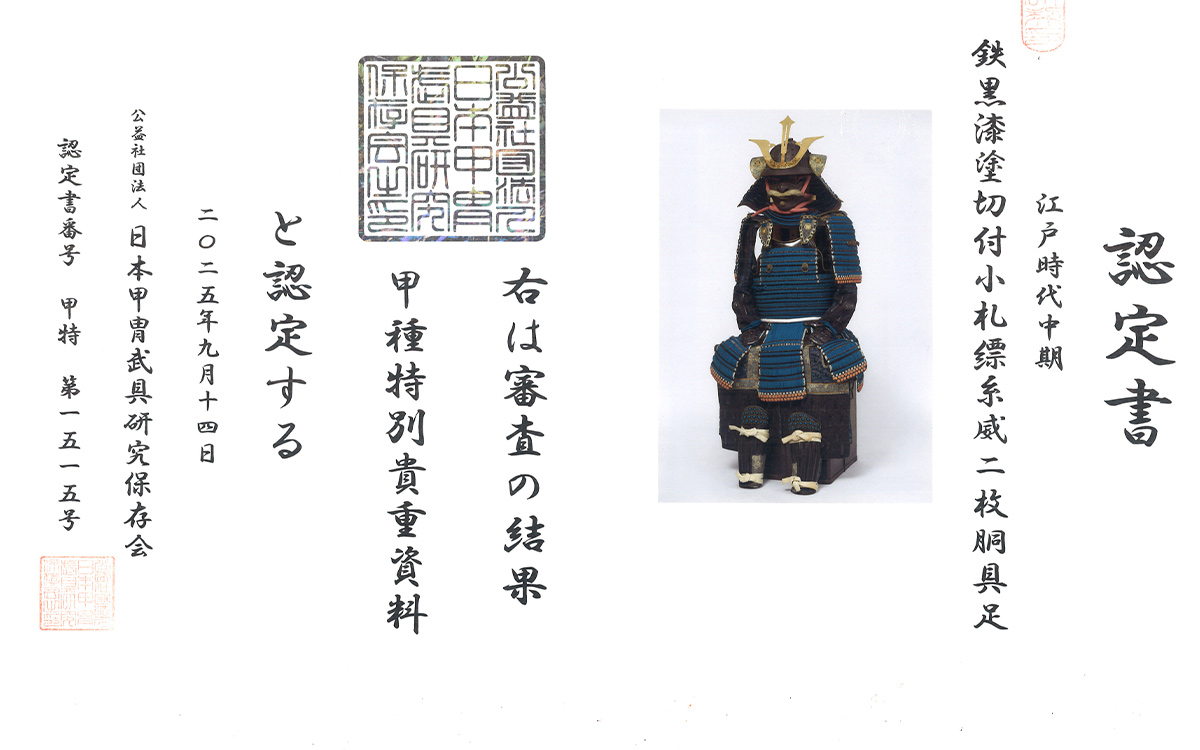 認定書
江戸時代中期
鉄黒漆塗切付小札縹糸威二枚胴具足
右は審査の結果
甲種特別貴重資料
と認定する
二〇二五年九月十四日
公益社団法人 日本甲冑武具研究保存会
認定書番号 甲特 第一五一一五号
公益社団法人
日本甲冑
武具研究
保存会之印